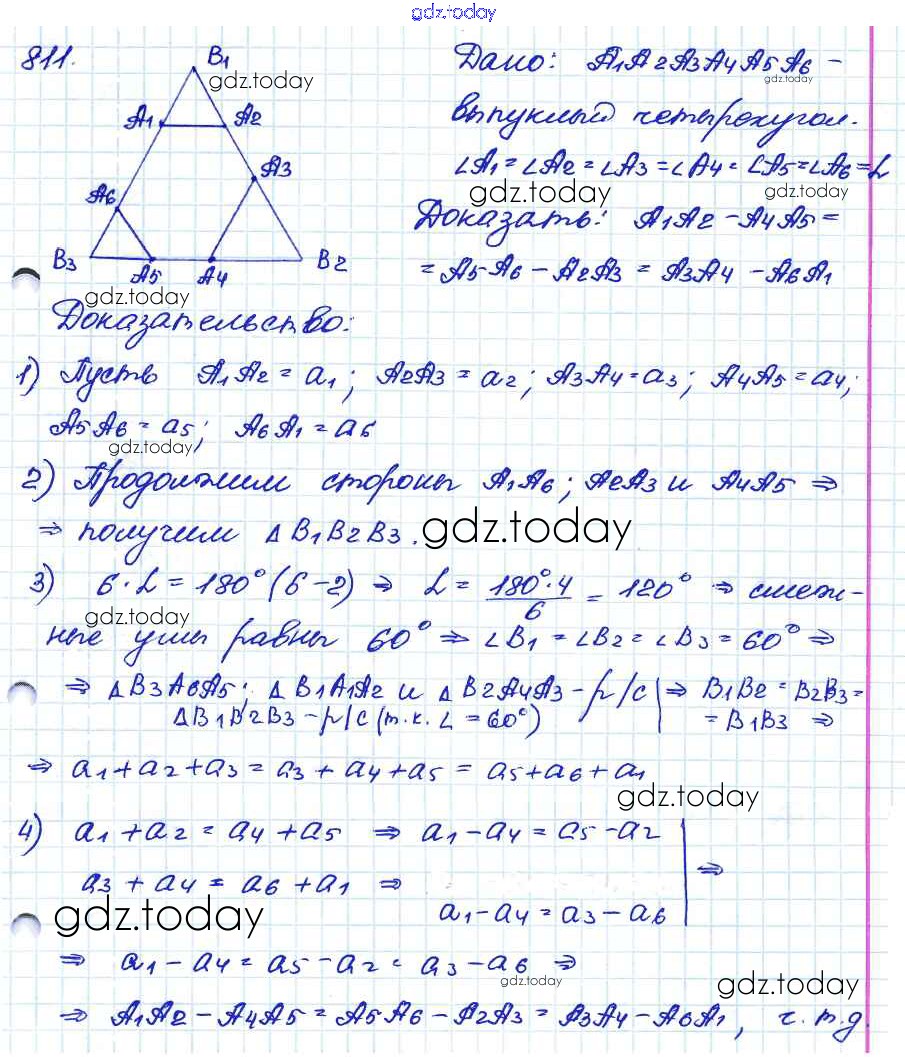 gdz.today
811.
B1
gdz.today
A1 A2
A3
A6
B3 A5 A4 B2
gdz.today
Дано: A1A2A3A4A5A6 –
gdz.today
выпуклый четырехугол.
∠A1 = ∠A2 = ∠A3 = ∠A4 = ∠A5 = ∠A6 = L
gdz.today gdz.today
Доказать: A1A2 – A4A5 =
= A5A6 – A2A3 = A3A4 – A6A1
Доказательство:
1) Пусть A1A2 = a1; A2A3 = a2; A3A4 = a3; A4A5 = a4;
A5A6 = a5; A6A1 = a6
gdz.today
2) Продолжим стороны A1A6; A2A3 и A4A5 ⇒
⇒ получим ΔB1B2B3.
gdz.today
3) 6·L = 180°(6–2) ⇒ L = 180°·4/6 = 120° ⇒ смеж-
gdz.today
ные углы равны 60° ⇒ ∠B1 = ∠B2 = ∠B3 = 60° ⇒
⇒ ΔB3A6A5; ΔB1A1A2 и ΔB2A4A3 – р/с | ⇒ B1B2 = B2B3 =
ΔB1B2B3 – р/с (т.к. L = 60°) | = B1B3 ⇒
⇒ a1 + a2 + a3 = a3 + a4 + a5 = a5 + a6 + a1
gdz.today
4) a1 + a2 = a4 + a5 ⇒ a1 – a4 = a5 – a2
a3 + a4 = a6 + a1 ⇒ ⇒
a1 – a4 = a3 – a6
gdz.today
⇒ a1 – a4 = a5 – a2 = a3 – a6 ⇒
gdz.today gdz.today
⇒ A1A2 – A4A5 = A5A6 – A2A3 = A3A4 – A6A1, ч.т.д.